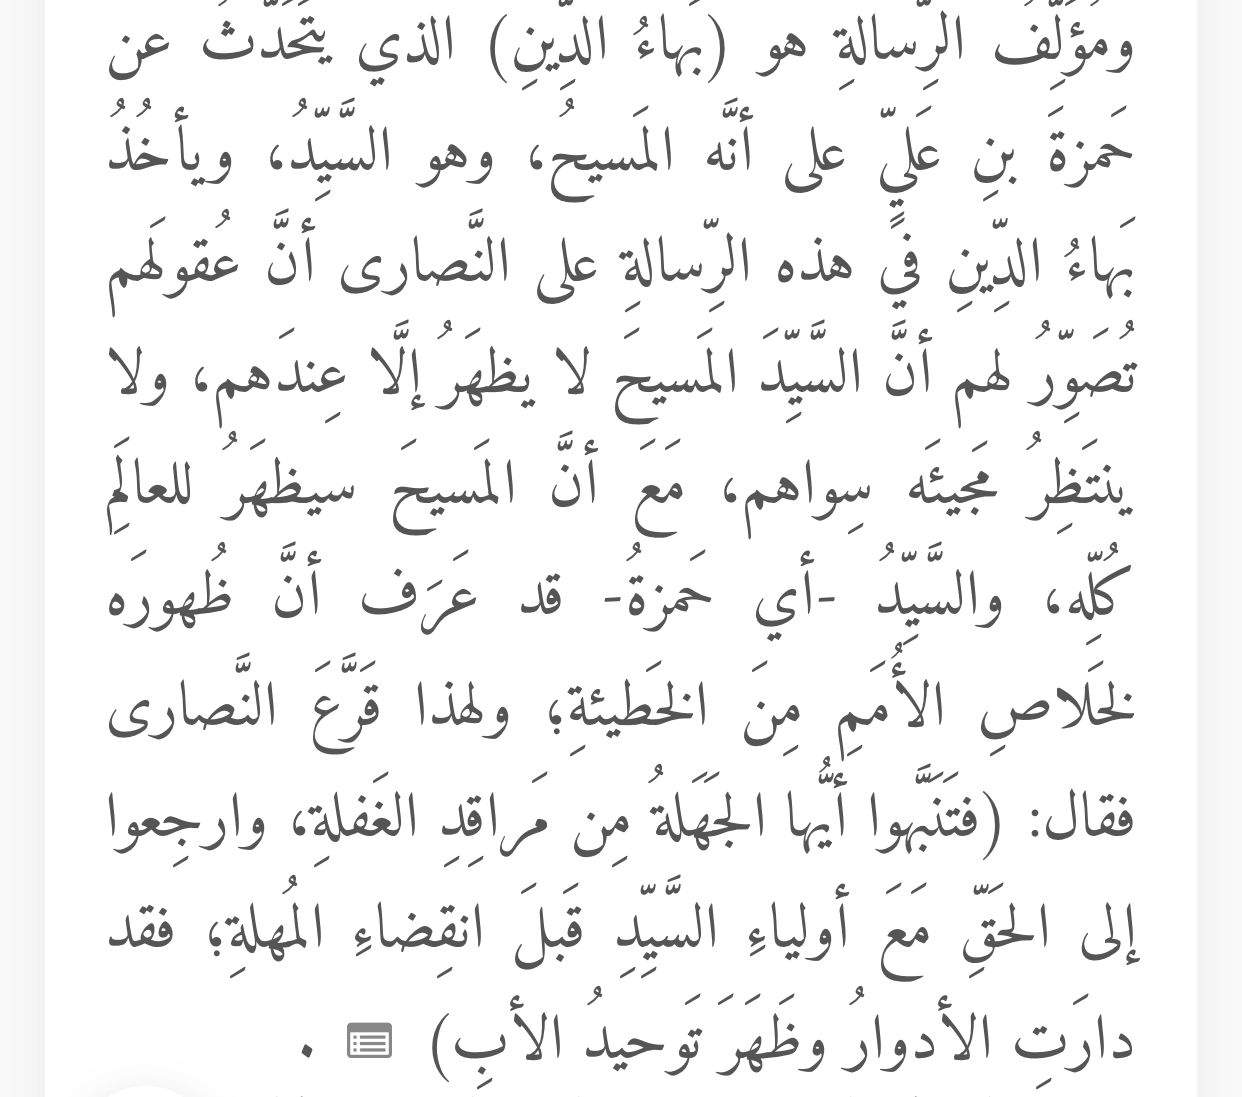 ومُؤَلِّفُ الرِّسالةِ هو (بَهاءُ الدِّينِ) الذي يتَحَدَّثُ عن
حَمزةَ بنِ عَليٍّ على أنَّه المَسيح، وهو السَّيِّدُ، ويأخُذُ
بَهاءُ الدِّينِ في هذه الرِّسالةِ على النَّصارى أنَّ عُقولَهم
تُصَوِّرُ لهم أنَّ السَّيِّدَ المَسيحَ لا يظهَرُ إلَّا عِندَهم، ولا
ينتَظِرُ مَجيئَه سِواهم، مَعَ أنَّ المَسيحَ سيظهَرُ للعالَمِ
كُلِّه، والسَّيِّدُ -أي حَمزةُ- قد عَرَف أنَّ ظُهورَه
لخَلاصِ الأُمَمِ مِنَ الخَطيئةِ؛ ولهذا قَرَّعَ النَّصارى
فقال: (فتَنَبَّهوا أيُّها الجَهَلةُ مِن مَراقِدِ الغَفلةِ، وارجِعوا
إلى الحَقِّ مَعَ أولياءِ السَّيِّدِ قَبلَ انقِضاءِ المُهلةِ؛ فقد
دارَتِ الأدوارُ وظَهَرَ تَوحيدُ الأبِ) .